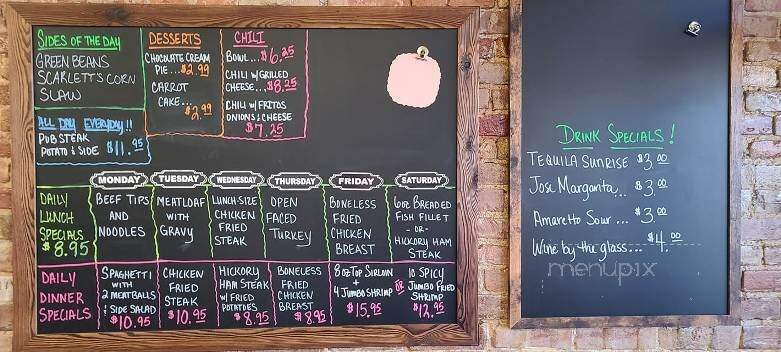 SIDES OF THE DAY
GREEN BEANS
SCARLETT'S CORN
SLAW
DESSERTS
CHOCOLATE CREAM
PIE...$2.99
CARROT
CAKE...
$2.99
CHILI
BOWL...$6.25
CHILI W/ GRILLED
CHEESE...$8.25
CHILI W/ FRITOS
ONIONS & CHEESE
$7.25
ALL DAY EVERYDAY!!
PUB STEAK
POTATO & SIDE $11.95
MONDAY
TUESDAY
WEDNESDAY
THURSDAY
FRIDAY
SATURDAY
DAILY
LUNCH
SPECIALS
$8.95
BEEF TIPS
AND
NOODLES
MEATLOAF
WITH
GRAVY
LUNCH SIZE
CHICKEN
FRIED
STEAK
OPEN
FACED
TURKEY
BONELESS
FRIED
CHICKEN
BREAST
6oz BREADED
FISH FILLET
-OR-
HICKORY HAM
STEAK
DAILY
DINNER
SPECIALS
SPAGHETTI
WITH
2 MEATBALLS
& SIDE SALAD
$10.95
CHICKEN
FRIED
STEAK
$10.95
HICKORY
HAM STEAK
W/ FRIED
POTATOES
$8.95
BONELESS
FRIED
CHICKEN
BREAST
$8.95
8oz TOP SIRLOIN
+
4 JUMBO SHRIMP
$15.95
OR
10 SPICY
JUMBO FRIED
SHRIMP
$12.95
DRINK SPECIALS!
TEQUILA SUNRISE $3.00
Jose Margarita... $3.00
Amaretto Sour... $3.00
Wine by the glass... $4.00
menupix